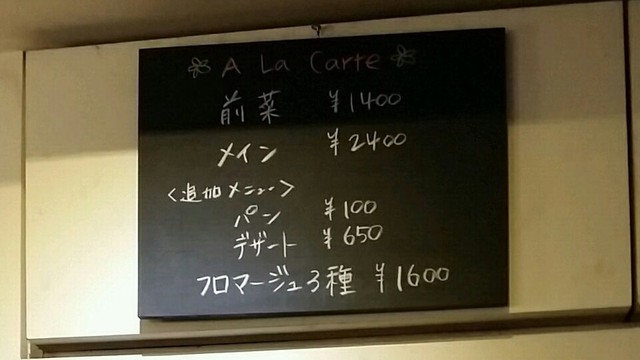 A La Carte
前菜 ¥1400
メイン ¥2400
<追加メニュー>
パン ¥100
デザート ¥650
フロマージュ3種 ¥1600